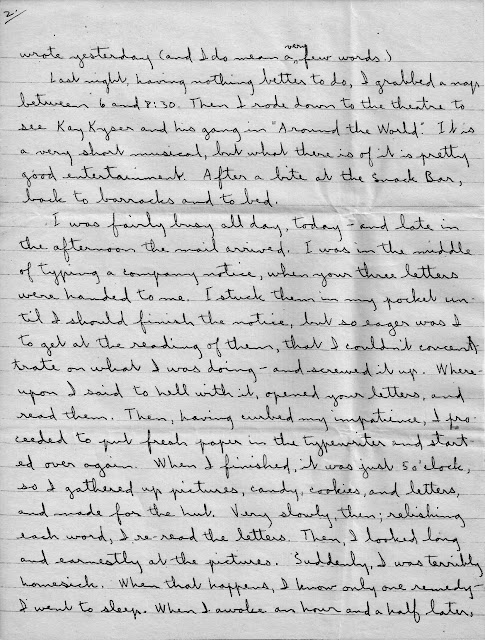 2.
wrote yesterday (and I do mean a very few words.)
Last night, having nothing better to do, I grabbed a nap
between 6 and 8:30. Then I rode down to the theatre to
see Kay Kyser and his gang in "Around the World". It is
a very short musical, but what there is of it is pretty
good entertainment. After a bite at the Snack Bar,
back to barracks and to bed.
I was fairly busy all day, today - and late in
the afternoon the mail arrived. I was in the middle
of typing a company notice, when your three letters
were handed to me. I stuck them in my pocket un-
til I should finish the notice, but so eager was I
to get at the reading of them, that I couldn't concen
trate on what I was doing - and screwed it up. Where-
upon I said to hell with it, opened your letters, and
read them. Then, having curbed my impatience, I pro-
ceeded to put fresh paper in the typewriter and start
ed over again. When I finished, it was just 5 o'clock,
so I gathered up pictures, candy, cookies, and letters,
and made for the hut. Very slowly, then; relishing
each word, I re-read the letters. Then, I looked long
and earnestly at the pictures. Suddenly, I was terribly
homesick. When that happens, I know only one remedy -
I went to sleep. When I awoke an hour and a half later,